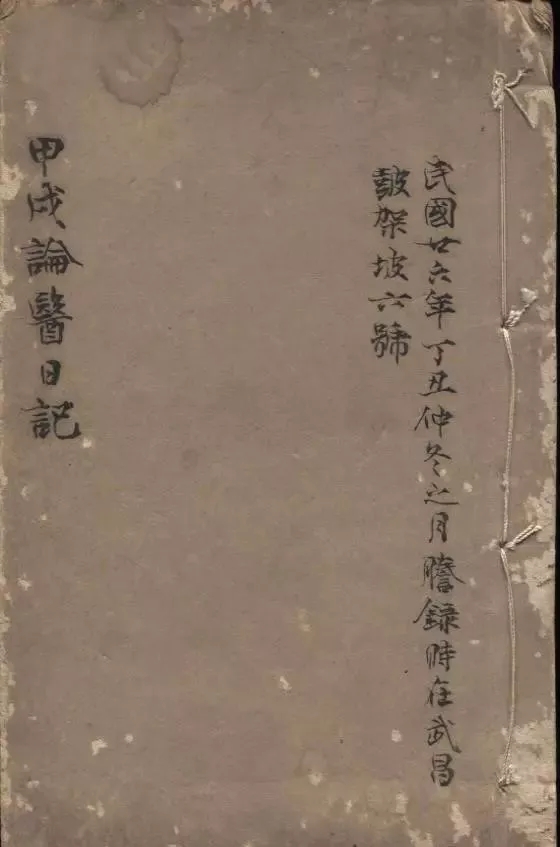 民國廿六年丁丑仲冬之月謄錄時在武昌
鼓架坡六號
甲戌論醫日記